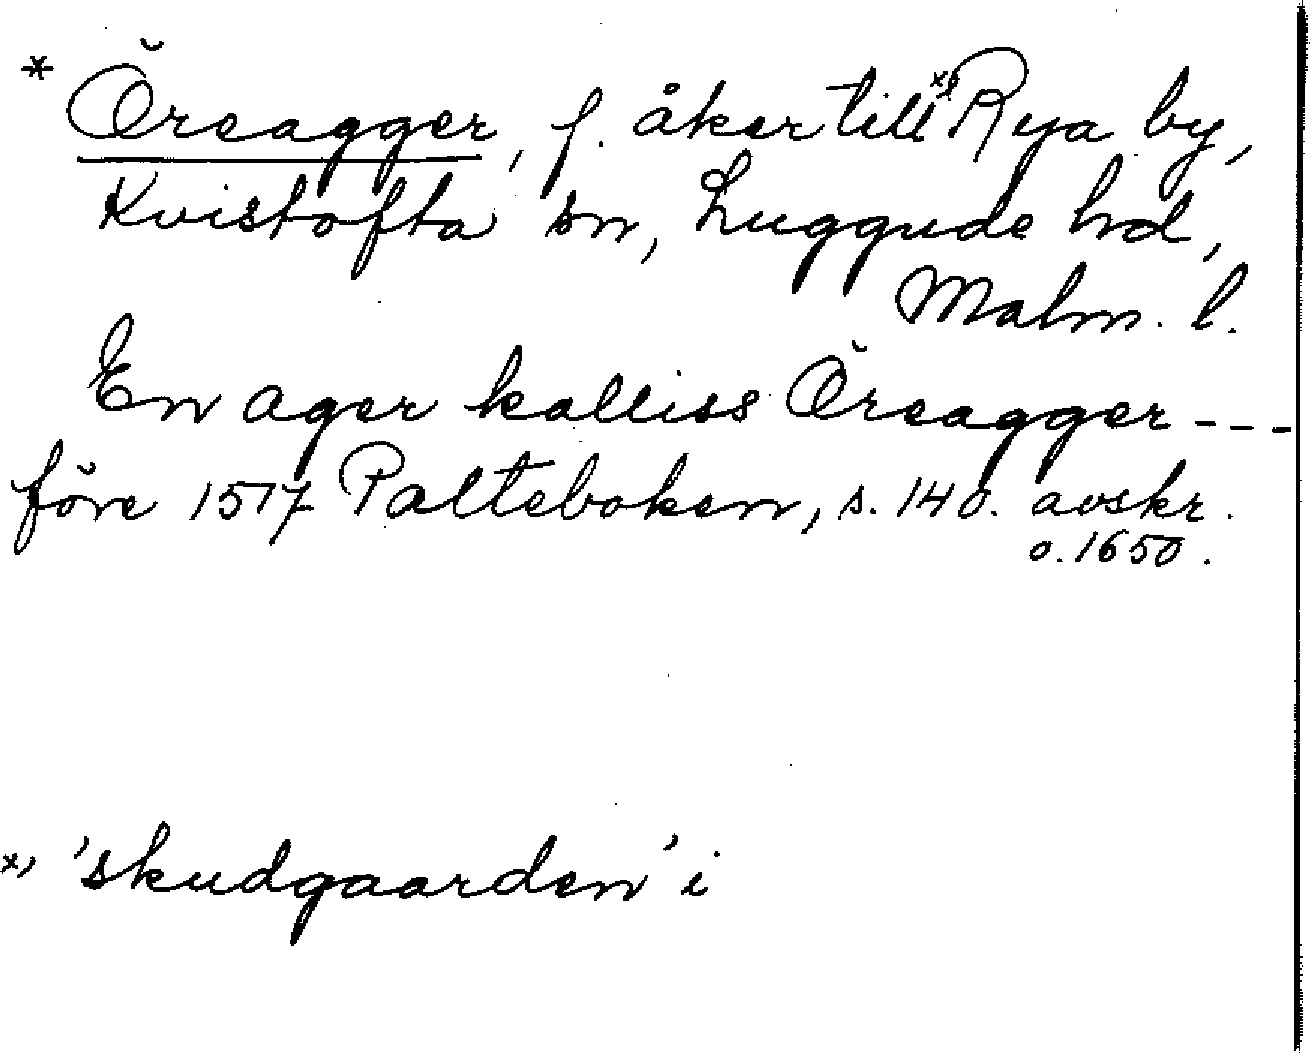 * Öreagger, f. åker till x) Rya by,
Kvistofta sn, Luggude hd,
Malm. l.
En ager kalliss Öreagger ---
före 1517 Palteboken, s. 140. avskr.
o. 1650.
x) 'skudgaarden' i